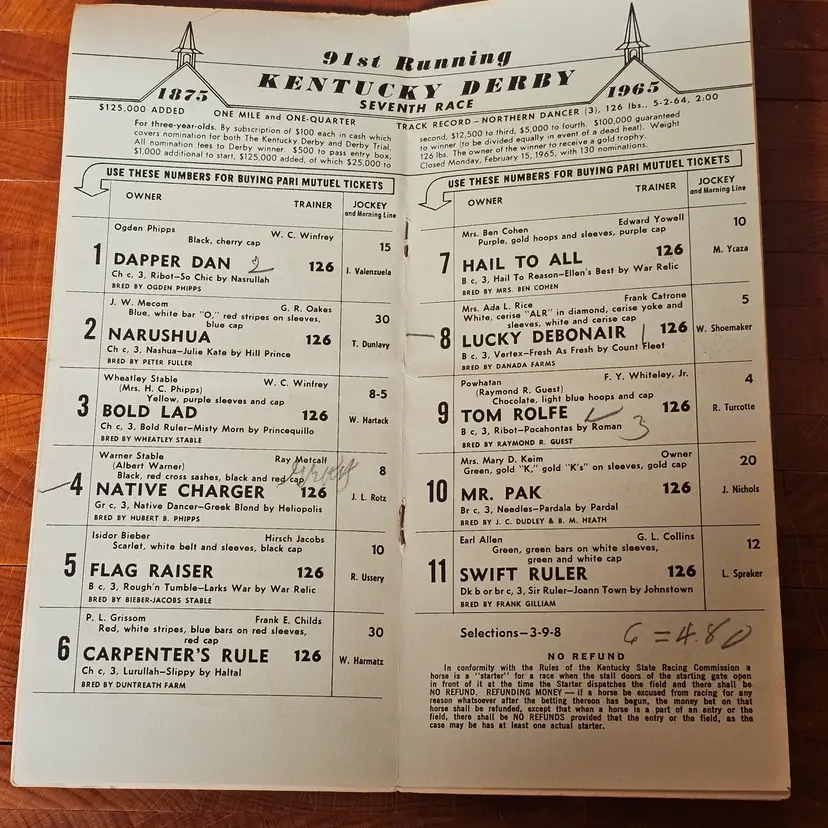 91st Running
KENTUCKY DERBY
1875
1965
SEVENTH RACE
$125,000 ADDED
ONE MILE and ONE-QUARTER
TRACK RECORD—NORTHERN DANCER (3), 126 lbs., 5-2-64, 2:00
For three-year-olds. By subscription of $100 each in cash which
covers nomination for both The Kentucky Derby and Derby Trial.
All nomination fees to Derby winner. $500 to pass entry box,
$1,000 additional to start, $125,000 added, of which $25,000 to
second, $12,500 to third, $5,000 to fourth. $100,000 guaranteed
to winner (to be divided equally in event of a dead heat). Weight
126 lbs. The owner of the winner to receive a gold trophy.
Closed Monday, February 15, 1965, with 130 nominations.
USE THESE NUMBERS FOR BUYING PARI MUTUEL TICKETS
OWNER TRAINER JOCKEY and Morning Line
Ogden Phipps W. C. Winfrey
Black, cherry cap 15
1 DAPPER DAN 2 126
Ch c, 3, Ribot—So Chic by Nasrullah I. Valenzuela
BRED BY OGDEN PHIPPS
J. W. Mecom G. R. Oakes
Blue, white bar "O," red stripes on sleeves, 30
blue cap
2 NARUSHUA 126
Ch c, 3, Nashua—Julie Kate by Hill Prince T. Dunlavy
BRED BY PETER FULLER
Wheatley Stable W. C. Winfrey
(Mrs. H. C. Phipps) 8-5
Yellow, purple sleeves and cap
3 BOLD LAD 126
Ch c, 3, Bold Ruler—Misty Morn by Princequillo W. Hartack
BRED BY WHEATLEY STABLE
Warner Stable Ray Metcalf
(Albert Warner) 8
Black, red cross sashes, black and red cap
4 NATIVE CHARGER 126
Gr c, 3, Native Dancer—Greek Blond by Heliopolis J. L. Rotz
BRED BY HUBERT B. PHIPPS
Isidor Bieber Hirsch Jacobs
Scarlet, white belt and sleeves, black cap 10
5 FLAG RAISER 126
B c, 3, Rough'n Tumble—Larks War by War Relic R. Ussery
BRED BY BIEBER-JACOBS STABLE
P. L. Grissom Frank E. Childs
Red, white stripes, blue bars on red sleeves, 30
red cap
6 CARPENTER'S RULE 126
Ch c, 3, Lurullah—Slippy by Haltal W. Harmatz
BRED BY DUNTREATH FARM
USE THESE NUMBERS FOR BUYING PARI MUTUEL TICKETS
OWNER TRAINER JOCKEY and Morning Line
Mrs. Ben Cohen Edward Yowell
Purple, gold hoops and sleeves, purple cap 10
7 HAIL TO ALL 126
B c, 3, Hail To Reason—Ellen's Best by War Relic M. Ycaza
BRED BY MRS. BEN COHEN
Mrs. Ada L. Rice Frank Catrone
White, cerise "ALR" in diamond, cerise yoke and 5
sleeves, white and cerise cap
8 LUCKY DEBONAIR 1 126
B c, 3, Vertex—Fresh As Fresh by Count Fleet W. Shoemaker
BRED BY DANADA FARMS
Powhatan F. Y. Whiteley, Jr.
(Raymond R. Guest) 4
Chocolate, light blue hoops and cap
9 TOM ROLFE 126
B c, 3, Ribot—Pocahontas by Roman 3 R. Turcotte
BRED BY RAYMOND R. GUEST
Mrs. Mary D. Keim Owner
Green, gold "K," gold "K's" on sleeves, gold cap 20
10 MR. PAK 126
Br c, 3, Needles—Pardala by Pardal J. Nichols
BRED BY J. C. DUDLEY & B. M. HEATH
Earl Allen G. L. Collins
Green, green bars on white sleeves, 12
green and white cap
11 SWIFT RULER 126
Dk b or br c, 3, Sir Ruler—Joann Town by Johnstown L. Spraker
BRED BY FRANK GILLIAM
Selections—3-9-8 6 = 4.80
NO REFUND
In conformity with the Rules of the Kentucky State Racing Commission a
horse is a "starter" for a race when the stall doors of the starting gate open
in front of it at the time the Starter dispatches the field and there shall be
NO REFUND. REFUNDING MONEY — if a horse be excused from racing for any
reason whatsoever after the betting thereon has begun, the money bet on that
horse shall be refunded, except that when a horse is a part of an entry or the
field, there shall be NO REFUNDS provided that the entry or the field, as the
case may be has at least one actual starter.